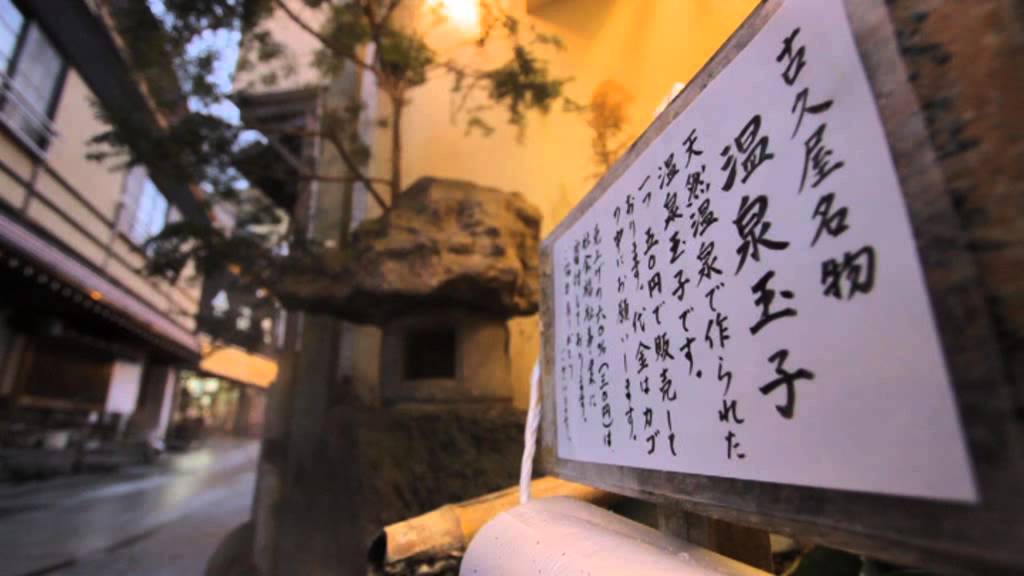 古久屋名物
温泉玉子
天然温泉で作られた
温泉玉子です。
一つ、五〇円で販売して
おります。代金はカゴ
の中にお願いします。
売上げの六〇%(三〇円)は